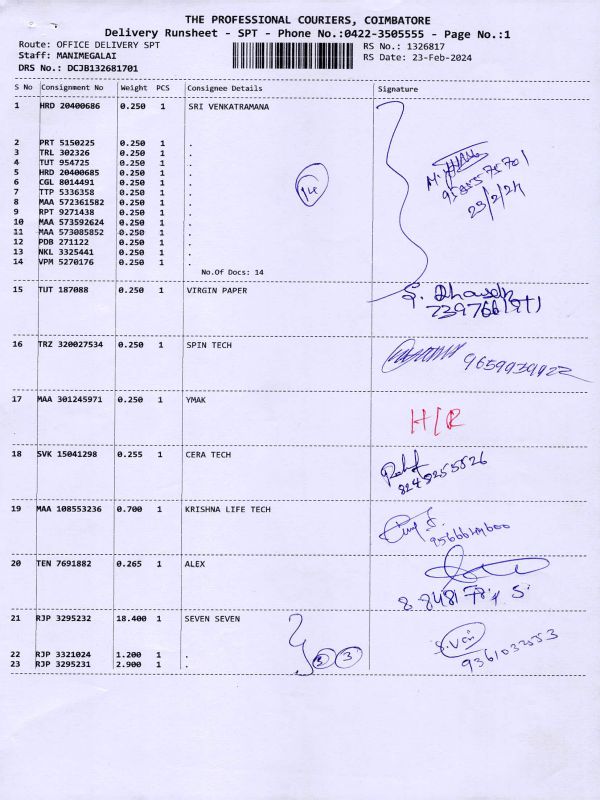 THE PROFESSIONAL COURIERS, COIMBATORE
Delivery Runsheet - SPT - Phone No.:0422-3505555 - Page No.:1
Route: OFFICE DELIVERY SPT RS No.: 1326817
Staff: MANIMEGALAI RS Date: 23-Feb-2024
DRS No.: DCJB132681701
S No Consignment No Weight PCS Consignee Details Signature
1 HRD 20400686 0.250 1 SRI VENKATRAMANA
2 PRT 5150225 0.250 1 .
3 TRL 302326 0.250 1 .
4 TUT 954725 0.250 1 .
5 HRD 20400685 0.250 1 .
6 CGL 8014491 0.250 1 .
7 TTP 5336358 0.250 1 .
8 MAA 572361582 0.250 1 .
9 RPT 9271438 0.250 1 .
10 MAA 573592624 0.250 1 .
11 MAA 573085852 0.250 1 .
12 PDB 271122 0.250 1 .
13 NKL 3325441 0.250 1 .
14 VPM 5270176 0.250 1 .
14
23/2/24
No.Of Docs: 14
15 TUT 187088 0.250 1 VIRGIN PAPER
16 TRZ 320027534 0.250 1 SPIN TECH
9659939922
17 MAA 301245971 0.250 1 YMAK
H/R
18 SVK 15041298 0.255 1 CERA TECH
19 MAA 108553236 0.700 1 KRISHNA LIFE TECH
20 TEN 7691882 0.265 1 ALEX
21 RJP 3295232 18.400 1 SEVEN SEVEN
22 RJP 3321024 1.200 1 .
23 RJP 3295231 2.900 1 .
3 3